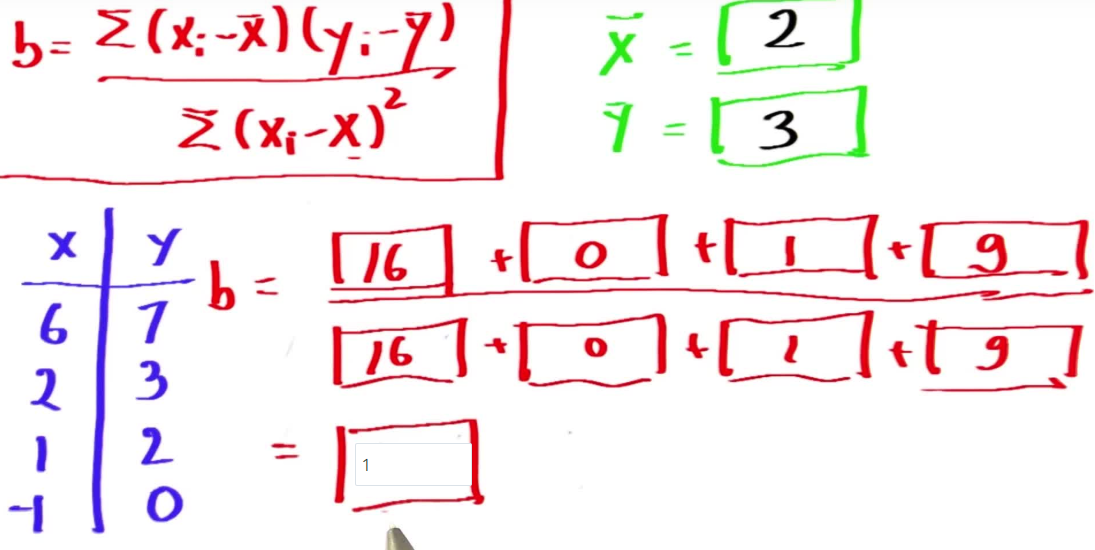 b = Σ(xᵢ-x̄)(yᵢ-ȳ)
Σ(xᵢ-x)²
x̄ = 2
ȳ = 3
x y
6 7
2 3
1 2
-1 0
b = 16 + 0 + 1 + 9
16 + 0 + 1 + 9
= 1